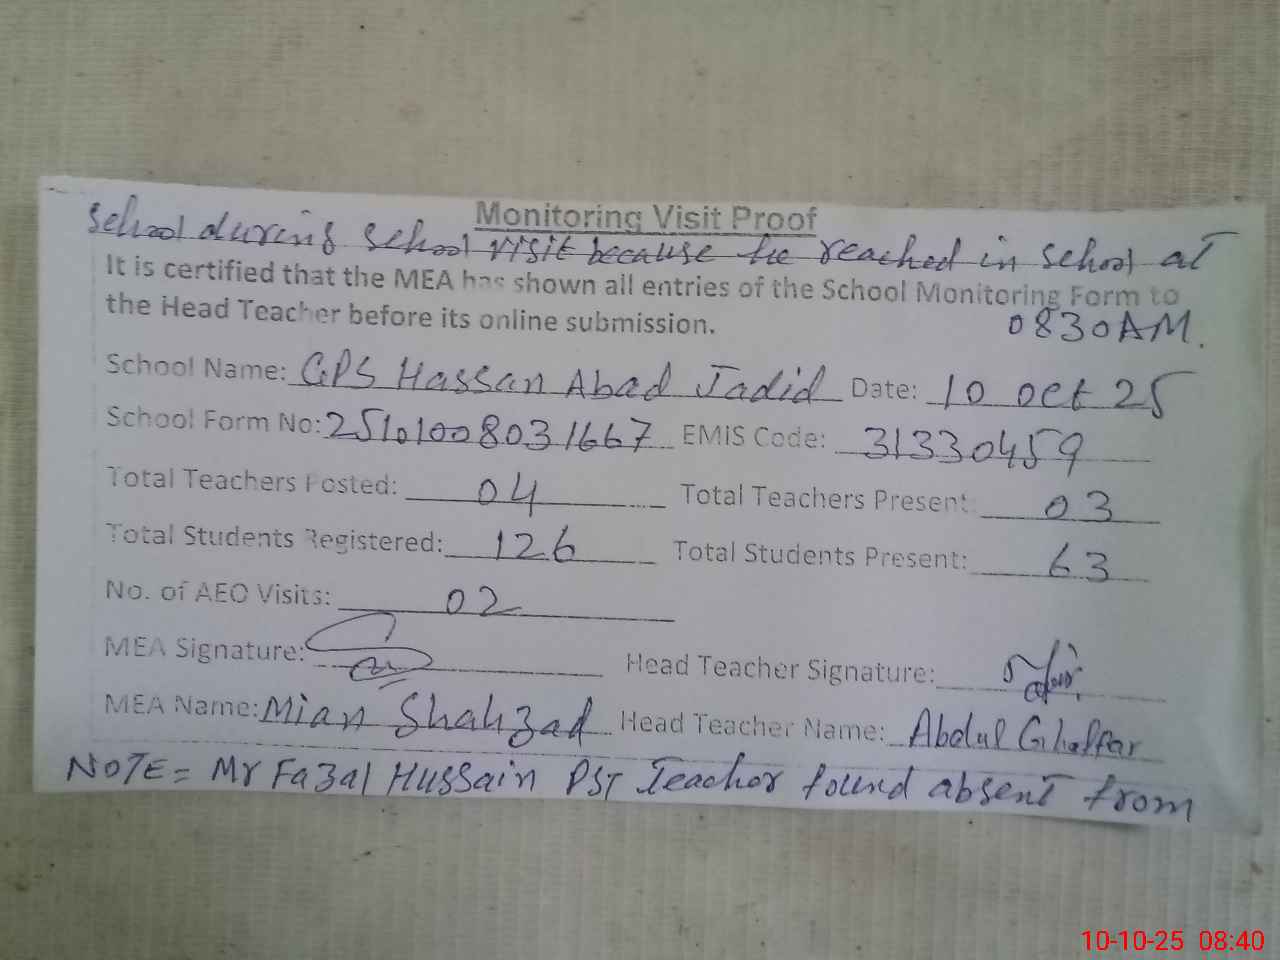 Monitoring Visit Proof
school during school visit because he reached in school at
It is certified that the MEA has shown all entries of the School Monitoring Form to
the Head Teacher before its online submission.
0830AM.
School Name: GPS Hassan Abad Jadid Date: 10 oct 25
School Form No: 25101008031667 EMIS Code: 31330459
Total Teachers Posted: 04 Total Teachers Present: 03
Total Students Registered: 126 Total Students Present: 63
No. of AEO Visits: 02
MEA Signature: Head Teacher Signature:
MEA Name: Mian Shahzad Head Teacher Name: Abdul Ghaffar
NOTE = Mr Fazal Hussain PST Teacher found absent from
10-10-25 08:40